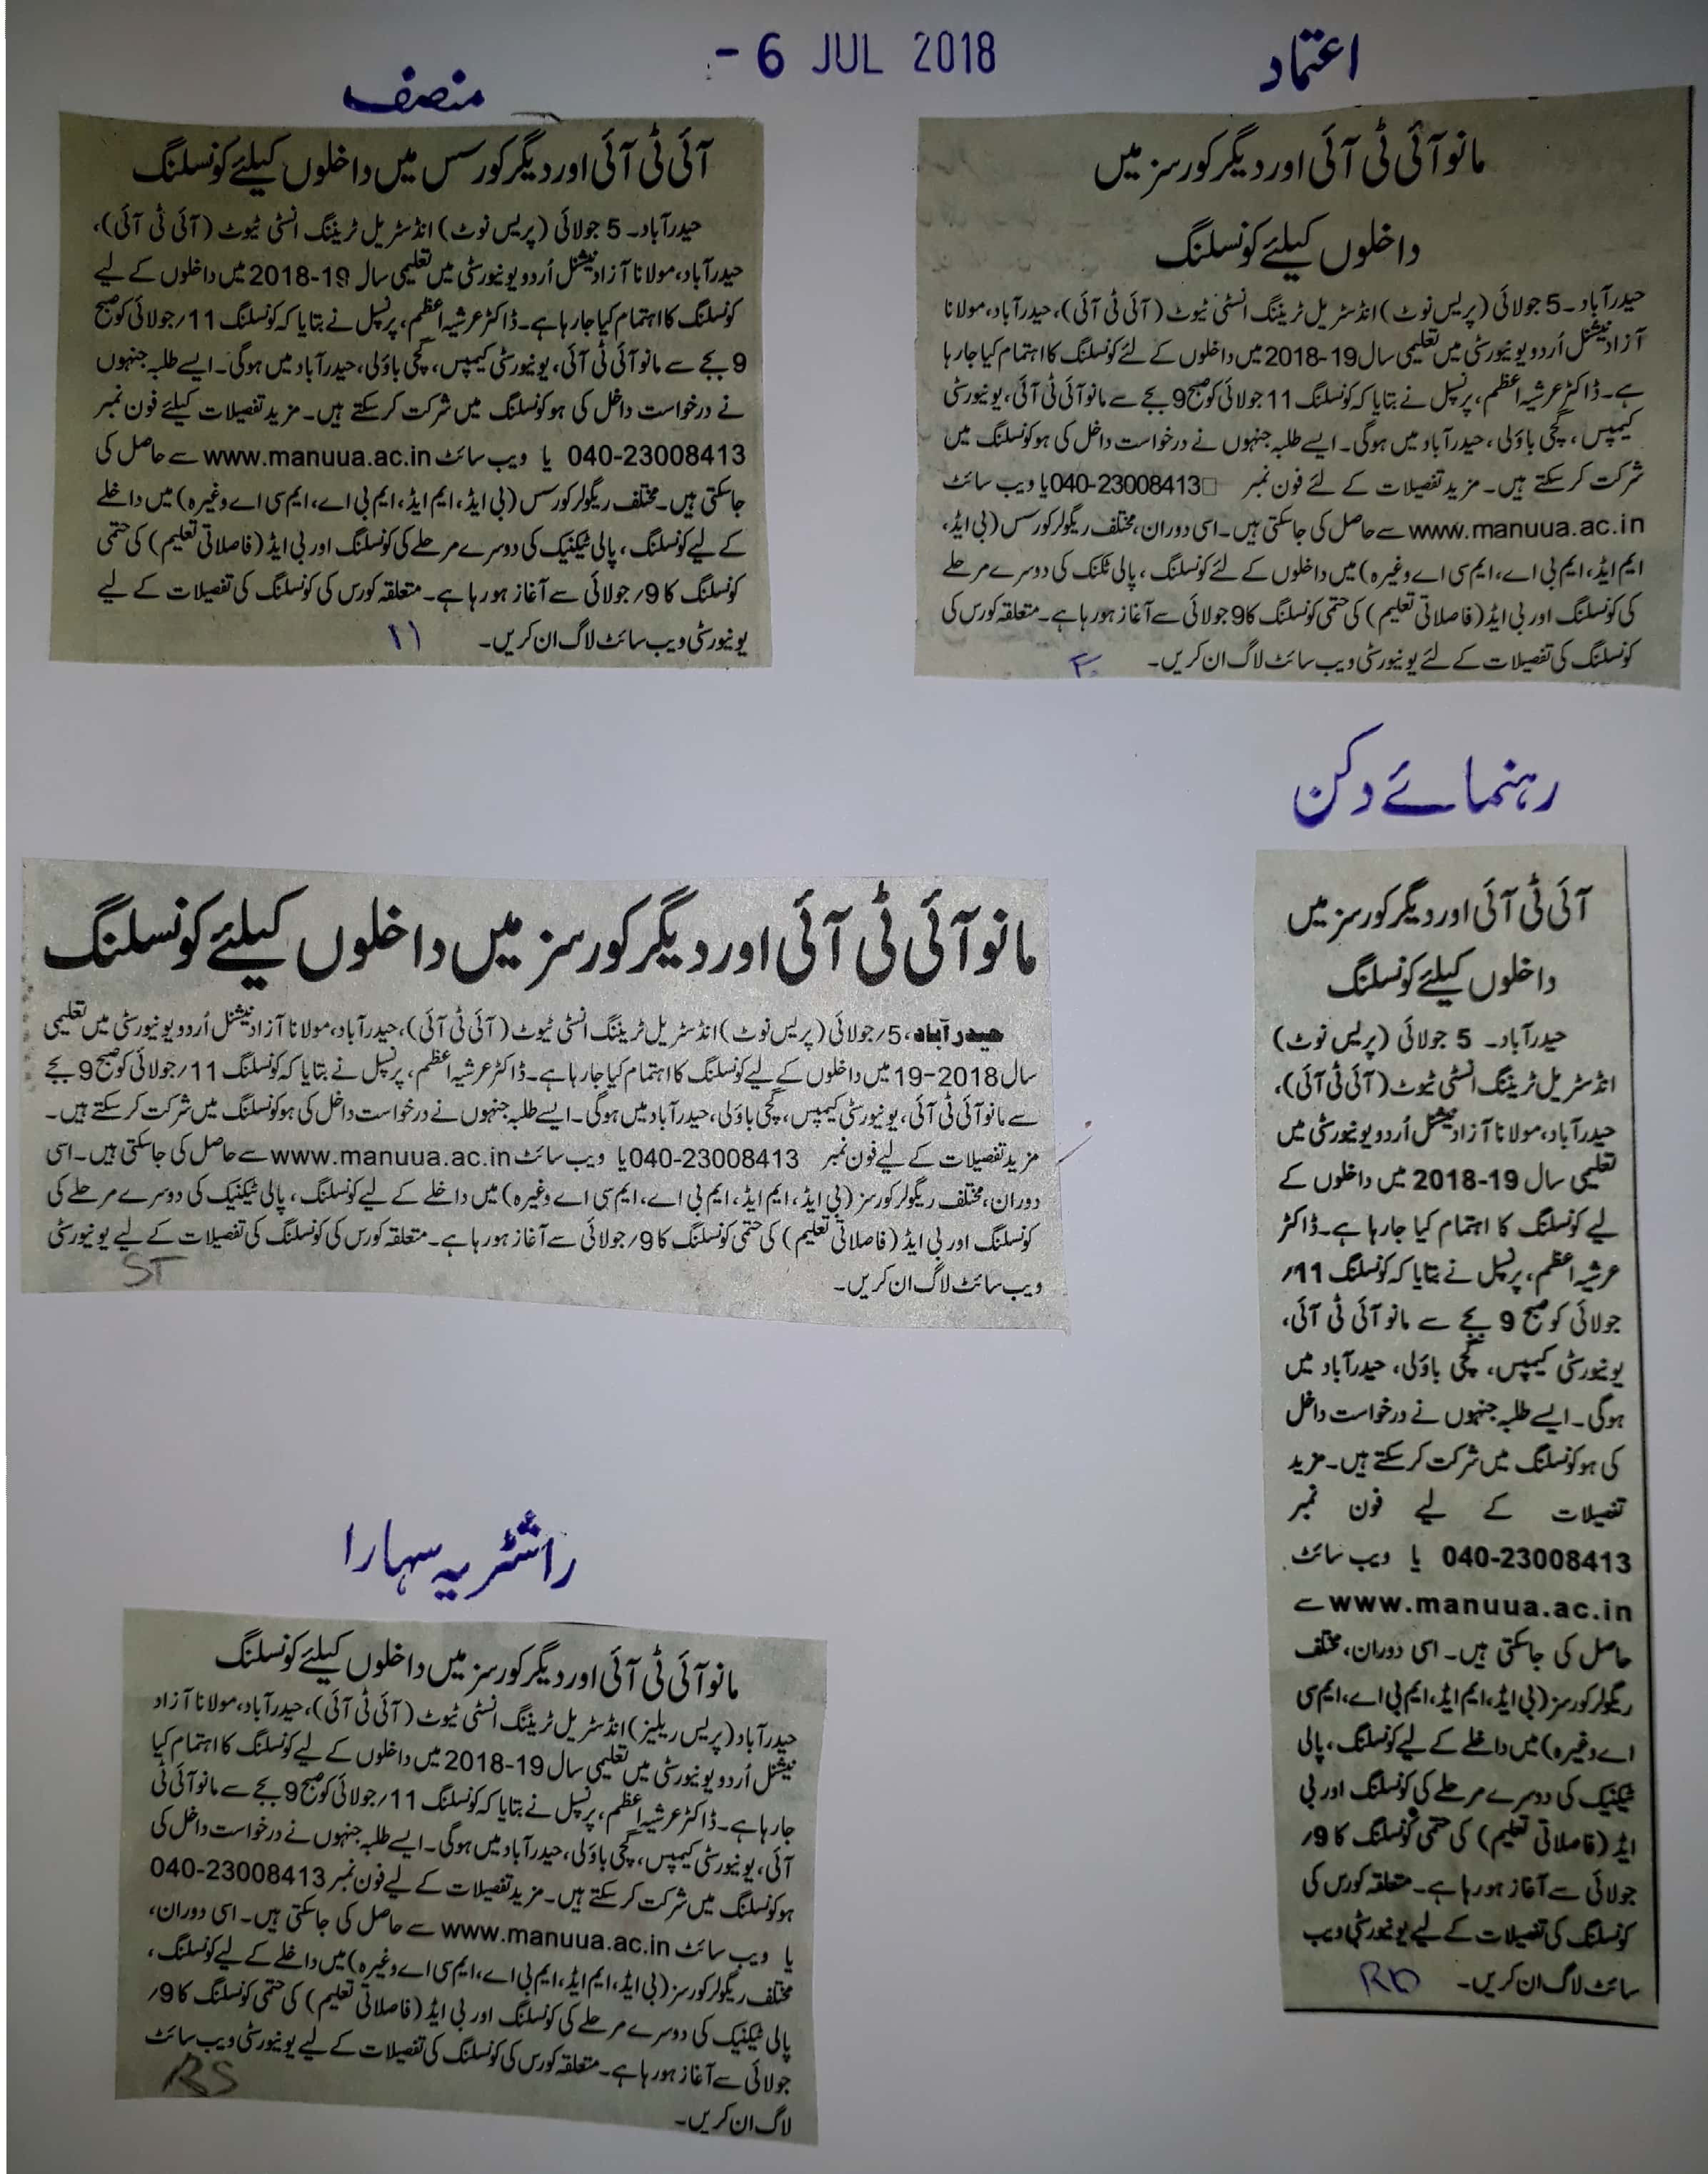 - 6 JUL 2018
اعتماد
مانو آئی ٹی آئی اور دیگر کورسز میں
داخلوں کیلئے کونسلنگ
حیدرآباد۔ 5 جولائی (پریس نوٹ) انڈسٹریل ٹریننگ انسٹی ٹیوٹ (آئی ٹی آئی)، حیدرآباد، مولانا
آزاد نیشنل اُردو یونیورسٹی میں تعلیمی سال 19-2018 میں داخلوں کے لئے کونسلنگ کا اہتمام کیا جارہا
ہے۔ ڈاکٹر عرشیہ اعظم، پرنسپل نے بتایا کہ کونسلنگ 11 جولائی کو صبح 9 بجے سے مانو آئی ٹی آئی، یونیورسٹی
کیمپس، گچی باؤلی، حیدرآباد میں ہوگی۔ ایسے طلبہ جنہوں نے درخواست داخل کی ہو کونسلنگ میں
شرکت کرسکتے ہیں۔ مزید تفصیلات کے لئے فون نمبر 040-23008413 یا ویب سائٹ
www.manuua.ac.in سے حاصل کی جاسکتی ہیں۔ اسی دوران، مختلف ریگولر کورسس (بی ایڈ،
ایم ایڈ، ایم بی اے، ایم سی اے وغیرہ) میں داخلوں کے لئے کونسلنگ، پالی ٹکنک کی دوسرے مرحلے
کی کونسلنگ اور بی ایڈ (فاصلاتی تعلیم) کی حتمی کونسلنگ کا 9 جولائی سے آغاز ہورہا ہے۔ متعلقہ کورس کی
کونسلنگ کی تفصیلات کے لئے یونیورسٹی ویب سائٹ لاگ ان کریں۔
منصف
آئی ٹی آئی اور دیگر کورسس میں داخلوں کیلئے کونسلنگ
حیدرآباد۔ 5 جولائی (پریس نوٹ) انڈسٹریل ٹریننگ انسٹی ٹیوٹ (آئی ٹی آئی)،
حیدرآباد، مولانا آزاد نیشنل اُردو یونیورسٹی میں تعلیمی سال 19-2018 میں داخلوں کے لیے
کونسلنگ کا اہتمام کیا جارہا ہے۔ ڈاکٹر عرشیہ اعظم، پرنسپل نے بتایا کہ کونسلنگ 11؍ جولائی کو صبح
9 بجے سے مانو آئی ٹی آئی، یونیورسٹی کیمپس، گچی باؤلی، حیدرآباد میں ہوگی۔ ایسے طلبہ جنہوں
نے درخواست داخل کی ہو کونسلنگ میں شرکت کرسکتے ہیں۔ مزید تفصیلات کیلئے فون نمبر
040-23008413 یا ویب سائٹ www.manuua.ac.in سے حاصل کی
جاسکتی ہیں۔ مختلف ریگولر کورسس (بی ایڈ، ایم ایڈ، ایم بی اے، ایم سی اے وغیرہ) میں داخلے
کے لیے کونسلنگ، پالی ٹیکنیک کی دوسرے مرحلے کی کونسلنگ اور بی ایڈ (فاصلاتی تعلیم) کی حتمی
کونسلنگ کا 9؍ جولائی سے آغاز ہورہا ہے۔ متعلقہ کورس کی کونسلنگ کی تفصیلات کے لیے
یونیورسٹی ویب سائٹ لاگ ان کریں۔ 11
رہنمائے دکن
آئی ٹی آئی اور دیگر کورسز میں
داخلوں کیلئے کونسلنگ
حیدرآباد۔ 5 جولائی (پریس نوٹ)
انڈسٹریل ٹریننگ انسٹی ٹیوٹ (آئی ٹی آئی)،
حیدرآباد، مولانا آزاد نیشنل اُردو یونیورسٹی میں
تعلیمی سال 19-2018 میں داخلوں کے
لیے کونسلنگ کا اہتمام کیا جارہا ہے۔ ڈاکٹر
عرشیہ اعظم، پرنسپل نے بتایا کہ کونسلنگ 11؍
جولائی کو صبح 9 بجے سے مانو آئی ٹی آئی،
یونیورسٹی کیمپس، گچی باؤلی، حیدرآباد میں
ہوگی۔ ایسے طلبہ جنہوں نے درخواست داخل
کی ہو کونسلنگ میں شرکت کرسکتے ہیں۔ مزید
تفصیلات کے لیے فون نمبر
040-23008413 یا ویب سائٹ
www.manuua.ac.in سے
حاصل کی جاسکتی ہیں۔ اسی دوران، مختلف
ریگولر کورسز (بی ایڈ، ایم ایڈ، ایم بی اے، ایم سی
اے وغیرہ) میں داخلے کے لیے کونسلنگ، پالی
ٹیکنیک کی دوسرے مرحلے کی کونسلنگ اور بی
ایڈ (فاصلاتی تعلیم) کی حتمی کونسلنگ کا 9؍
جولائی سے آغاز ہورہا ہے۔ متعلقہ کورس کی
کونسلنگ کی تفصیلات کے لیے یونیورسٹی ویب
سائٹ لاگ ان کریں۔ RD
مانو آئی ٹی آئی اور دیگر کورسز میں داخلوں کیلئے کونسلنگ
حیدرآباد، 5؍ جولائی (پریس نوٹ) انڈسٹریل ٹریننگ انسٹی ٹیوٹ (آئی ٹی آئی)، حیدرآباد، مولانا آزاد نیشنل اُردو یونیورسٹی میں تعلیمی
سال 2018-19 میں داخلوں کے لیے کونسلنگ کا اہتمام کیا جارہا ہے۔ ڈاکٹر عرشیہ اعظم، پرنسپل نے بتایا کہ کونسلنگ 11؍ جولائی کو صبح 9 بجے
سے مانو آئی ٹی آئی، یونیورسٹی کیمپس، گچی باؤلی، حیدرآباد میں ہوگی۔ ایسے طلبہ جنہوں نے درخواست داخل کی ہو کونسلنگ میں شرکت کرسکتے ہیں۔
مزید تفصیلات کے لیے فون نمبر 040-23008413 یا ویب سائٹ www.manuua.ac.in سے حاصل کی جاسکتی ہیں۔ اسی
دوران، مختلف ریگولر کورسز (بی ایڈ، ایم ایڈ، ایم بی اے، ایم سی اے وغیرہ) میں داخلے کے لیے کونسلنگ، پالی ٹیکنیک کی دوسرے مرحلے کی
کونسلنگ اور بی ایڈ (فاصلاتی تعلیم) کی حتمی کونسلنگ کا 9؍ جولائی سے آغاز ہورہا ہے۔ متعلقہ کورس کی کونسلنگ کی تفصیلات کے لیے یونیورسٹی
ویب سائٹ لاگ ان کریں۔ ST
راشٹریہ سہارا
مانو آئی ٹی آئی اور دیگر کورسز میں داخلوں کیلئے کونسلنگ
حیدرآباد (پریس ریلیز) انڈسٹریل ٹریننگ انسٹی ٹیوٹ (آئی ٹی آئی)، حیدرآباد، مولانا آزاد
نیشنل اُردو یونیورسٹی میں تعلیمی سال 19-2018 میں داخلوں کے لیے کونسلنگ کا اہتمام کیا
جارہا ہے۔ ڈاکٹر عرشیہ اعظم، پرنسپل نے بتایا کہ کونسلنگ 11؍ جولائی کو صبح 9 بجے سے مانو آئی ٹی
آئی، یونیورسٹی کیمپس، گچی باؤلی، حیدرآباد میں ہوگی۔ ایسے طلبہ جنہوں نے درخواست داخل کی
ہو کونسلنگ میں شرکت کرسکتے ہیں۔ مزید تفصیلات کے لیے فون نمبر 040-23008413
یا ویب سائٹ www.manuua.ac.in سے حاصل کی جاسکتی ہیں۔ اسی دوران،
مختلف ریگولر کورسز (بی ایڈ، ایم ایڈ، ایم بی اے، ایم سی اے وغیرہ) میں داخلے کے لیے کونسلنگ،
پالی ٹیکنیک کی دوسرے مرحلے کی کونسلنگ اور بی ایڈ (فاصلاتی تعلیم) کی حتمی کونسلنگ کا 9؍
جولائی سے آغاز ہورہا ہے۔ متعلقہ کورس کی کونسلنگ کی تفصیلات کے لیے یونیورسٹی ویب سائٹ
لاگ ان کریں۔ RS